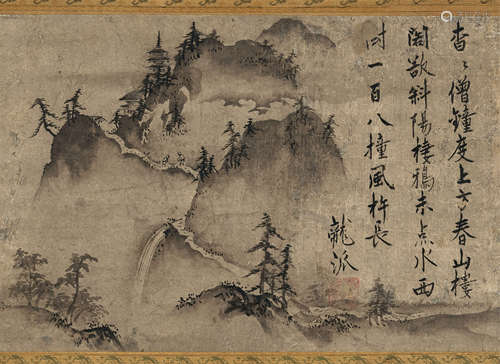 杳〻僧鐘度上方春山樓
閣欲斜陽棲鴉未点水西
村一百八撞風杵長
龍派